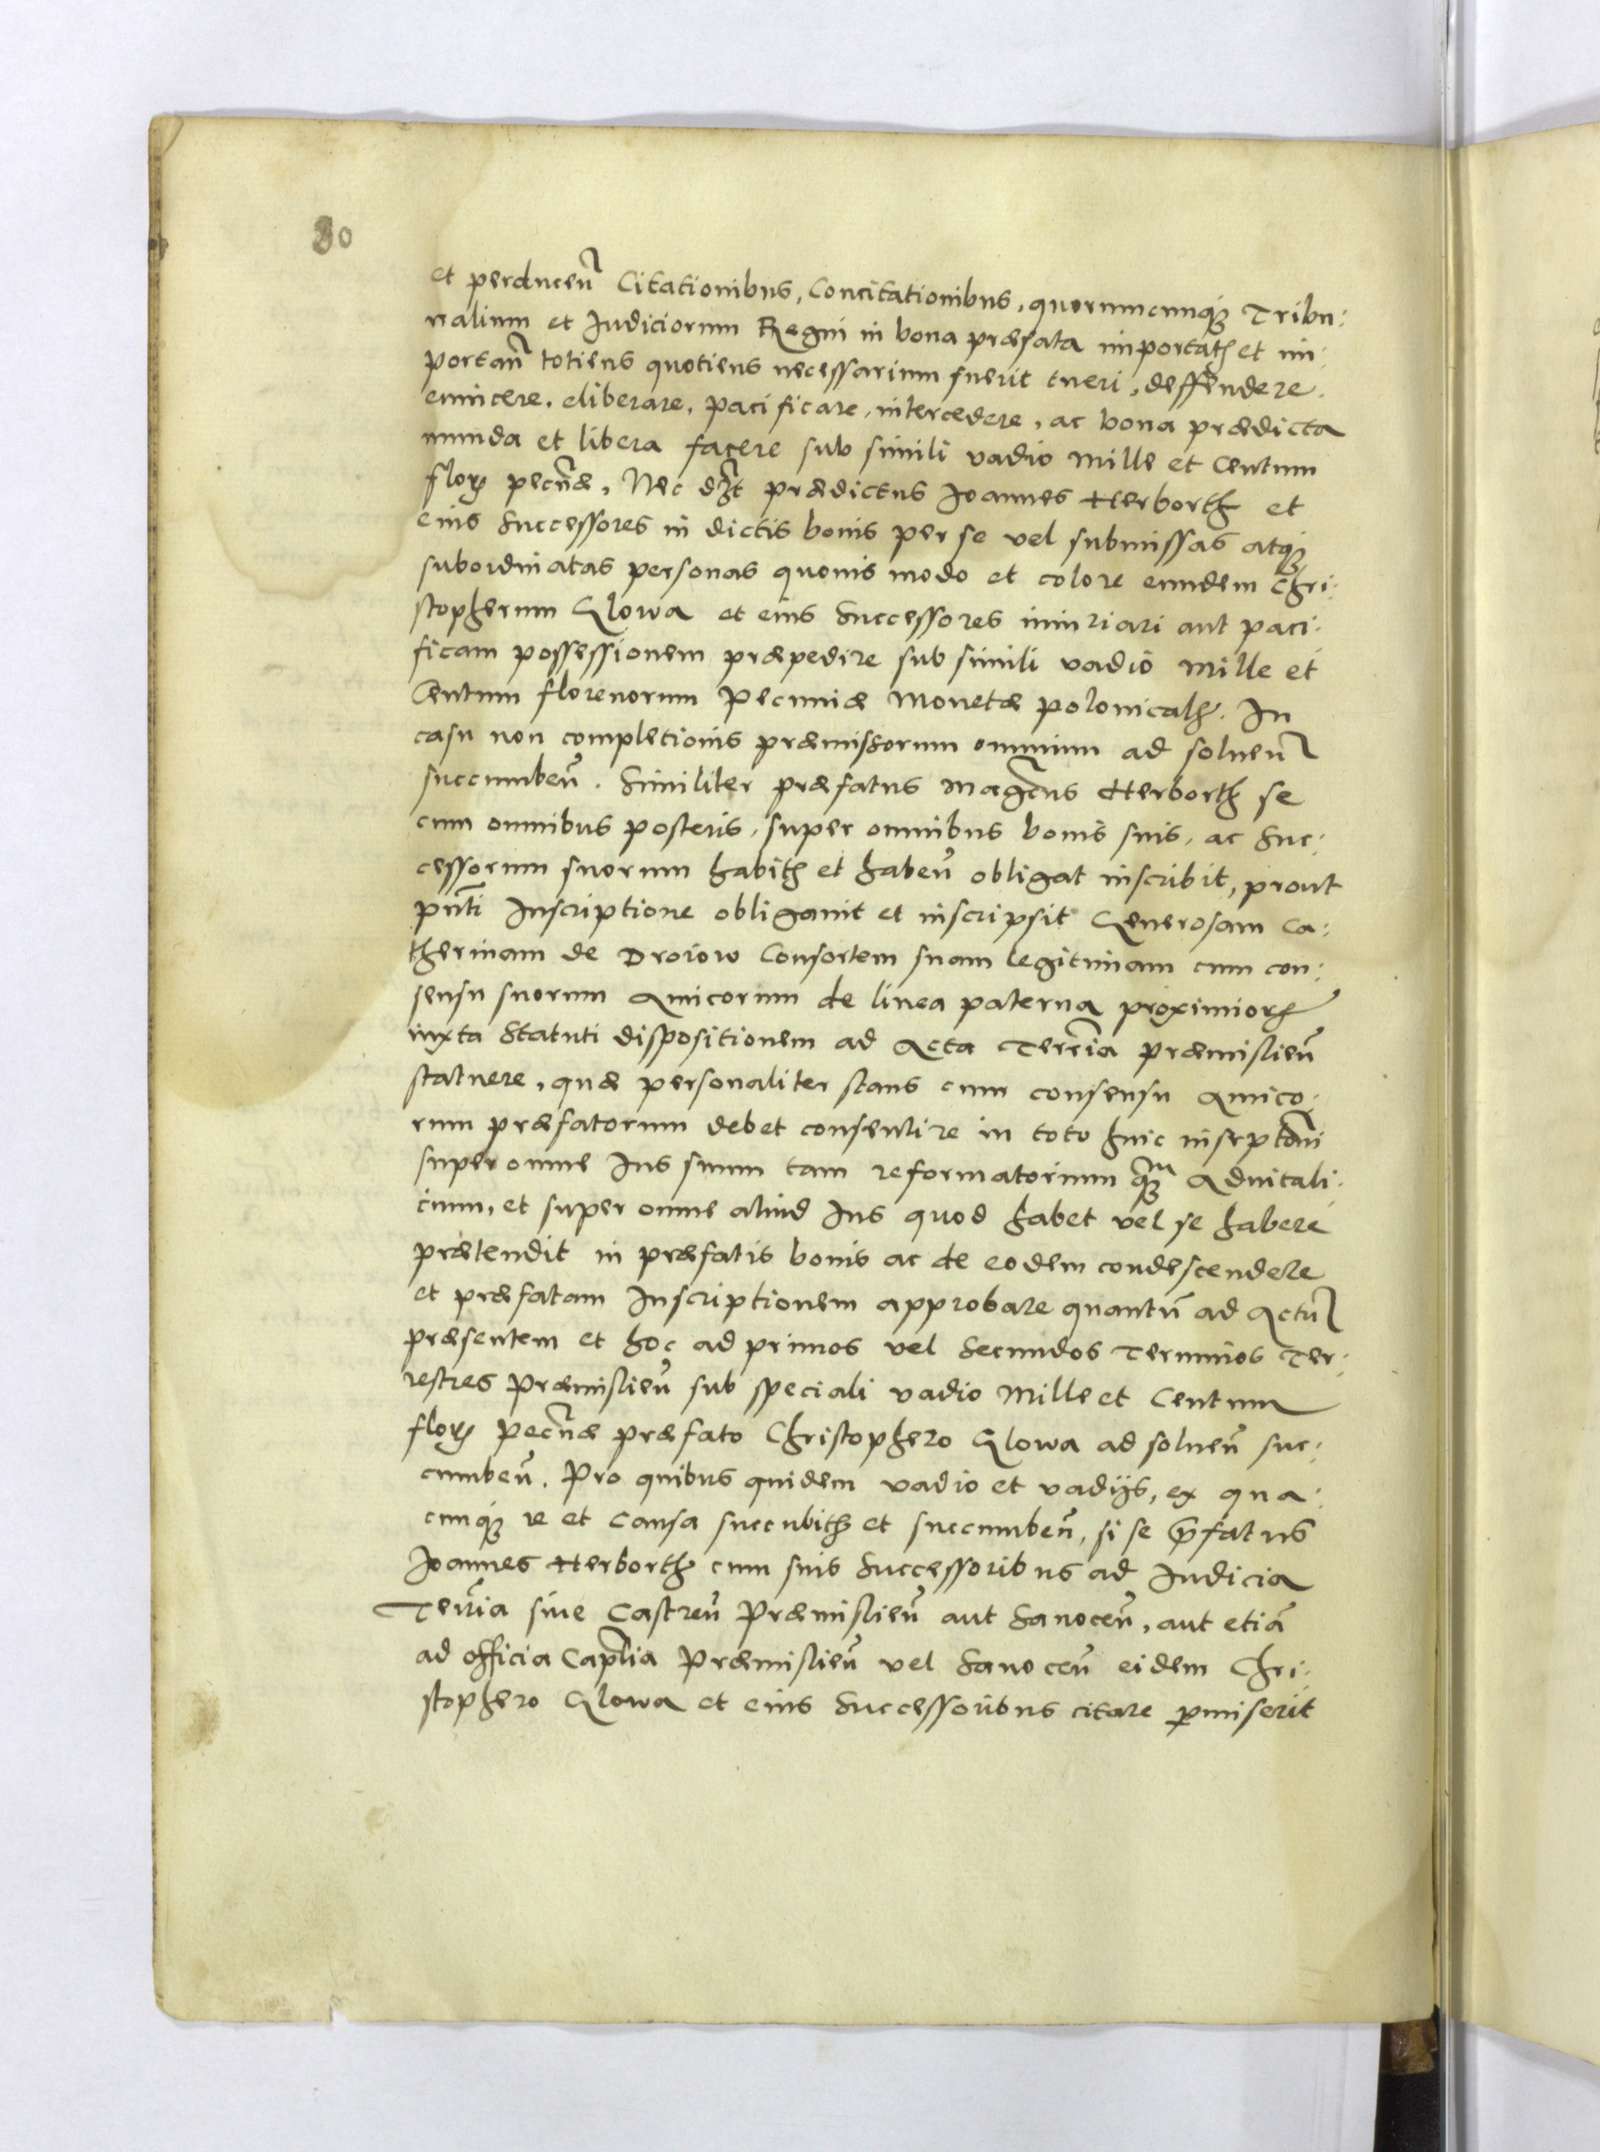 30
et perducen̄ Citationibus, Concitationibus, quorumcunq̢ Tribu:
nalium et Iudiciorum Regni in bona præfata importatꝭ et im:
portan̄ totiens quotiens necessarium fuerit tueri, deffendere.
euincere, eliberare, pacificare, intercedere, ac bona prædicta
munda et libera facere sub simili vadio Mille et Centum
floꝝ pecūæ, Nec d̄t prædictus Joannes Herborth et
eius Successores in dictis bonis per se vel submissas atq̢
subordinatas personas quouis modo et colore eundem Chri:
stopherum Glowa et eius Successores iniuriari aut paci:
ficam possessionem præpedire sub simili vadio Mille et
Centum florenorum Pecuniæ Monetæ polonicalꝭ. In
casu non completionis præmissorum omnium ad soluen̄
succumben̄. Similiter præfatus Maḡcus Herborth se
cum omnibus posteris, super omnibus bonis suis, ac Suc:
cessorum suorum habitꝭ et haben̄ obligat inscribit, prout
pn̄ti Inscriptione obligauit et inscripsit Generosam Ca:
therinam de Droiow Consortem suam legitimam cum con:
sensu suorum Amicorum de linea paterna proximioꝝ
iuxta Statuti dispositionem ad Acta Terr̄ia Præmislien̄
statuere, quæ personaliter stans cum consensu Amico:
rum præfatorum debet consentire in toto huic inscpt̄oni
super omne Ius suum tam reformatorium q̢m Aduitali:
cium, et super omne aliud Ius quod habet vel se habere
prætendit in præfatis bonis ac de eodem condescendere
et præfatam Inscriptionem approbare quantū ad Actū
præsentem et hoc ad primos vel Secundos Terminos Ter:
restres Præmislien̄ sub speciali vadio Mille et Centum
floꝝ Pecūæ præfato Christophero Glowa ad soluen̄ suc:
cumben̄. Pro quibus quidem vadio et vadijs, ex qua:
cunq̢ re et Causa succubitꝭ et succumben̄, si se p̄fatus
Joannes Herborth cum suis Successoribus ad Iudicia
Terr̄ia siue Castren̄ Præmislien̄ aut Sanocen̄, aut etiā
ad officia Cap̄lia Præmislien̄ vel Sanocen̄ eidem Chri:
stophero Glowa et eius Successoribus citare ꝑmiserit